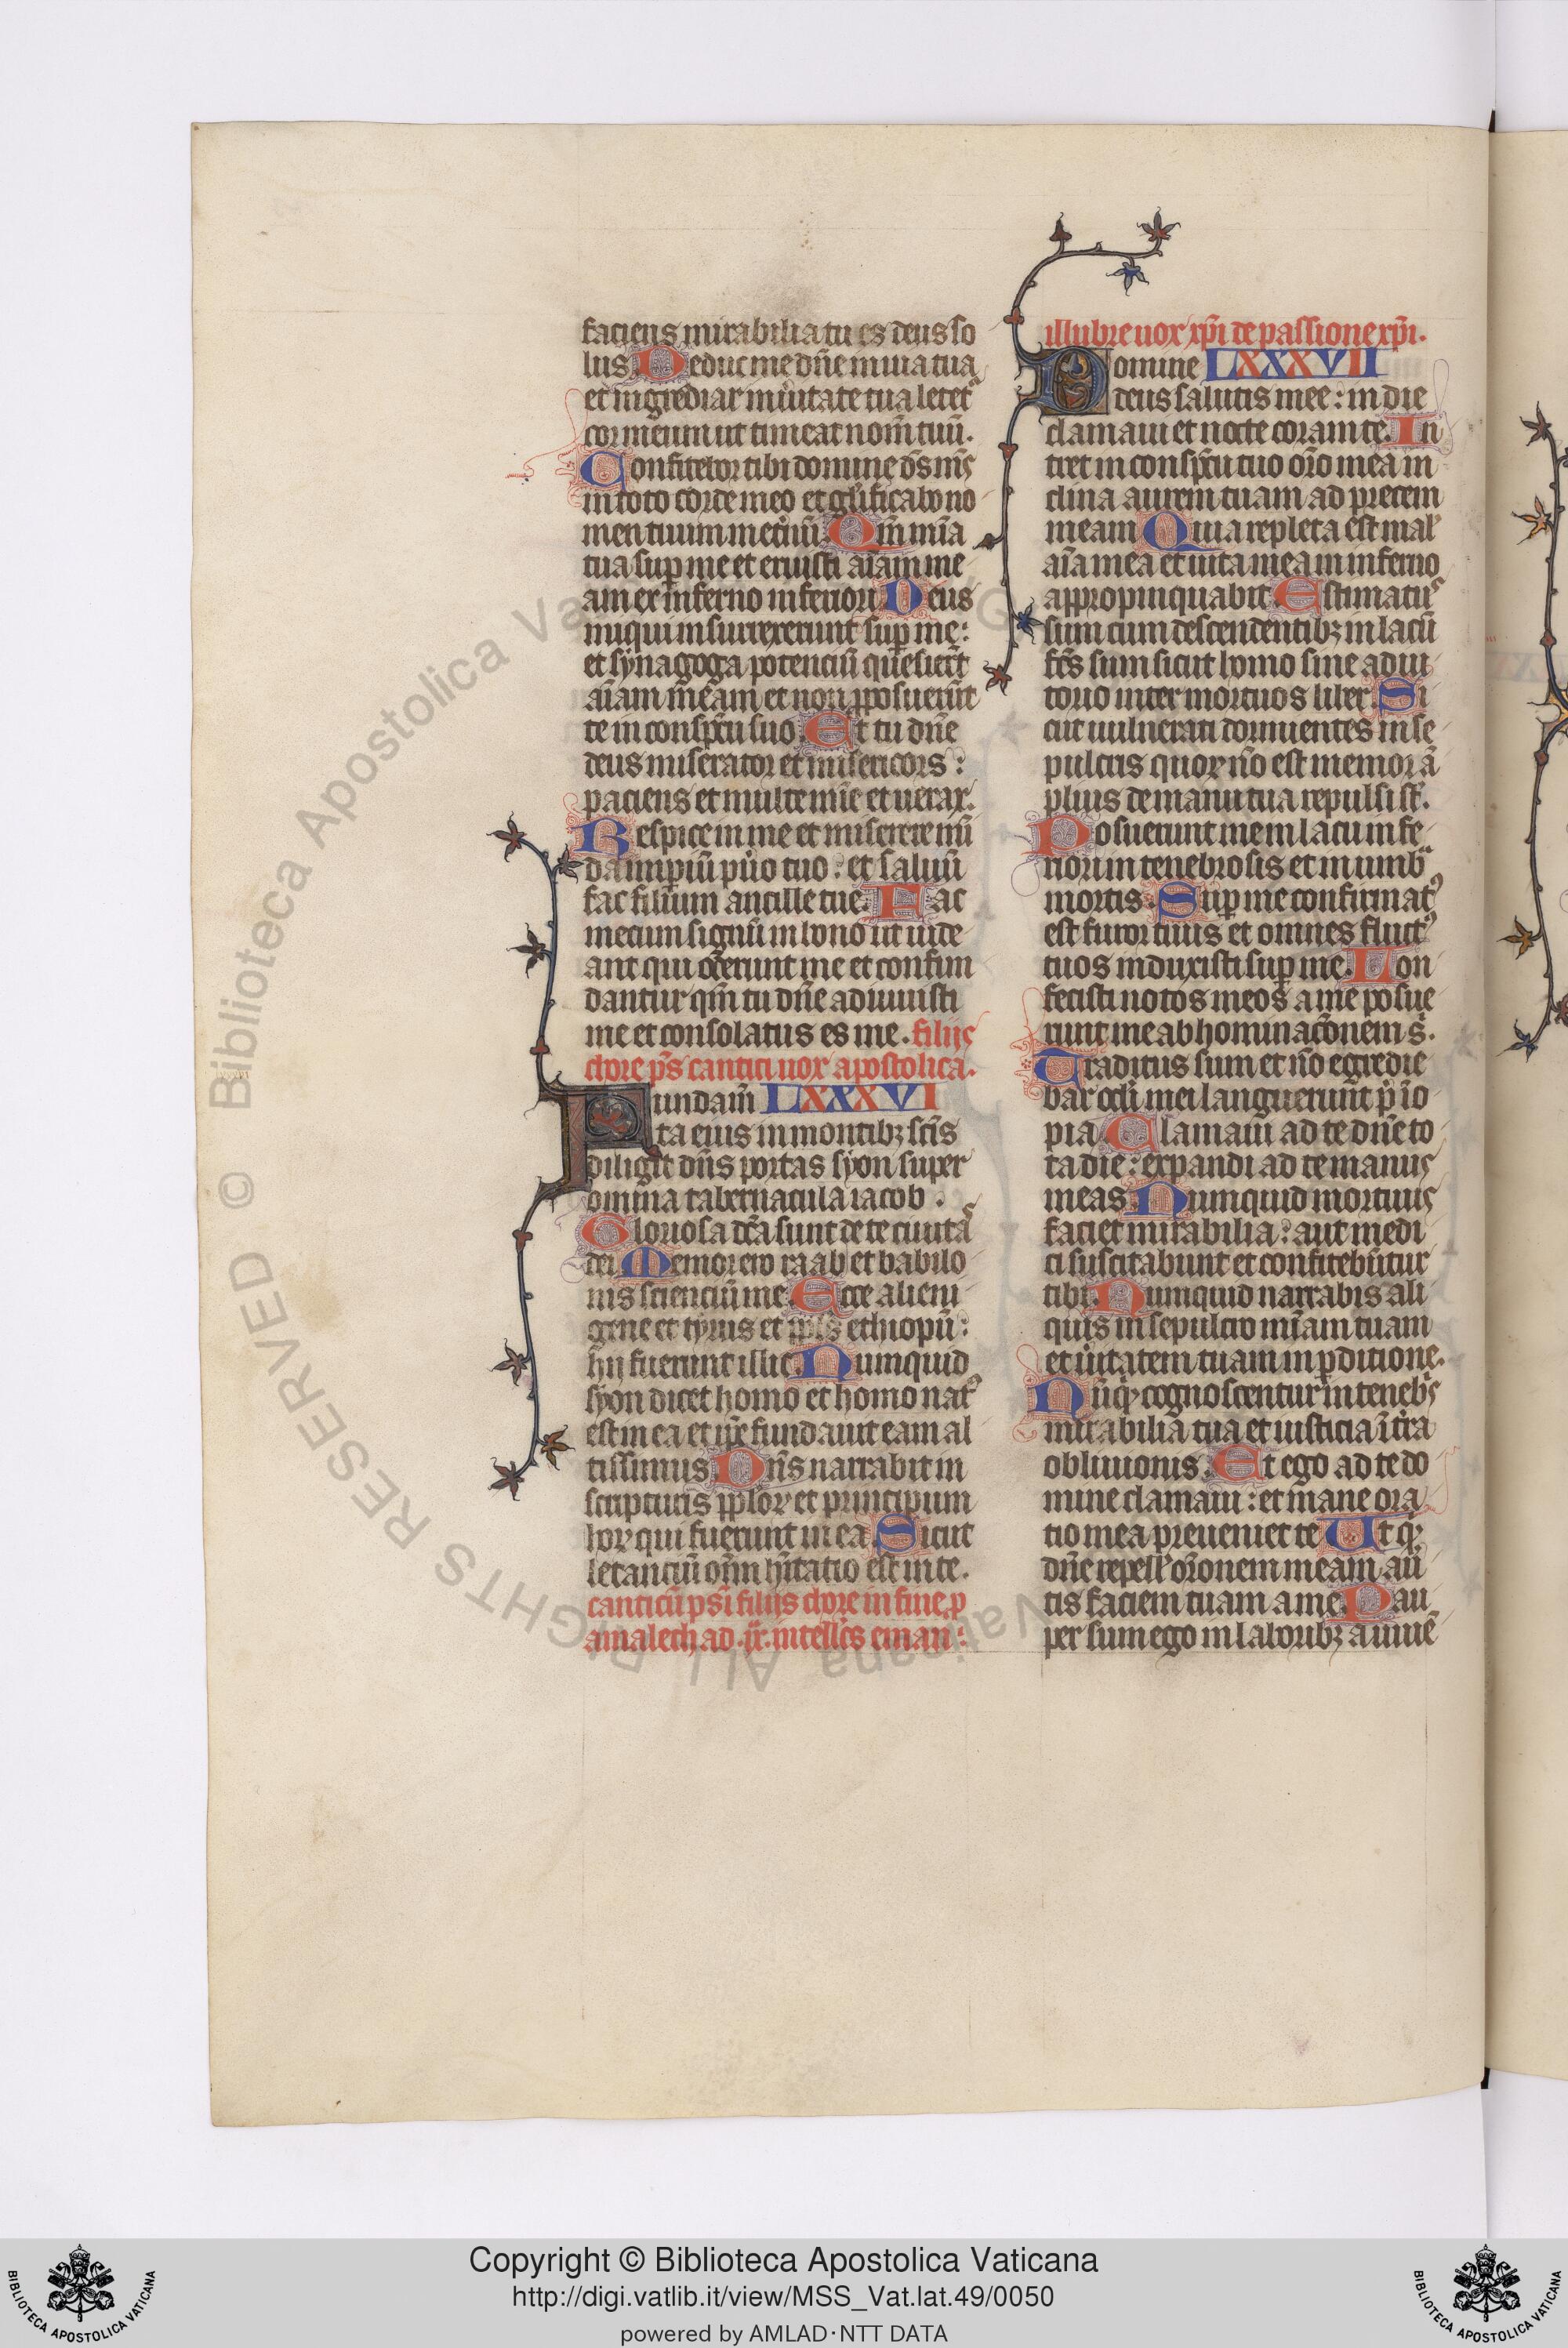 faciens mirabilia tu es deus so
lus Deduc me dn̄e in uia tua
et ingrediar in uͥtate tua letet᷑
cor meum ut timeat nom̄ tuū.
Confitebor tibi domine d̄s m̄s
in toto corde meo et gl̄ificabo no
men tuum in et̄nū Qm̄ mīa
tua suꝑ me et eruisti aīam me
am ex inferno inferiori Deus
iniqui insurrexerunt suꝑ me:
et synagoga potenciū quesier̄t
aīam meam et non ꝓposuerūt
te in consp̄cu suo Et tu dn̄e
deus miserator et misericors:
paciens et multe mīe et uerax.
Respice in me et miserere mei
da impiū pu̓o tuo: et saluū
fac filium ancille tue. Fac
mecum signū in bono ut uide
ant qui od̓erunt me et confun
dantur qm̄ tu dn̄e adiuuisti
me et consolatus es me. filijs
chore p̄s cantici uox apostolica.
Fundam̄ LXXXVI
ta eius in montibꝫ sc̄is
diligit dn̄s portas syon super
omnia tabernacula iacob.
Gloriosa dc̄a sunt de te ciuitas
dei Memor ero raab et babilo
nis sciencium me Ecce alieni
gene et tyrus et ppl̄s ethiopū:
hij fuerunt illic. Numquid
syon dicet homo et homo nat᷒
est in ea et ip̄e fundauit eam al
tissimus Dn̄s narrabit in
scripturis ppl̄oꝝ et principum
hoꝝ qui fuerunt in ea Sicut
letanciū om̄ h̄itatio est in te.
canticū psī filijs chore in fine ꝓ
amalech ad ·r̄· intell̄cs eman:
illubre uox xp̄i de passione xp̄i.
Domine LXXXVII
deus salutis mee: in die
clamaui et nocte coram te. In
tret in consp̄cu tuo or̄o mea in
clina aurem tuam ad precem
meam Quia repleta est mal᷑
aīa mea et uita mea in inferno
appropinquabit. Estimatus
sum cum descendentibꝫ in lacū
fc̄s sum sicut homo sine adiu
torio inter mortuos liber Si
cut uulnerati dormientes in se
pulcris quoꝝ nō est memor ā
plius de manu tua repulsi st̄.
Posuerunt me in lacu infe
riori in tenebrosis et in umbᵃ
mortis. Suꝑ me confirmat᷒
est furor tuus et omnes fluct᷒
tuos induxisti suꝑ me. Lon
fecisti notos meos a me posue
runt me abhominac̄onem s.
Traditus sum et nō egredie
bar oc̄li mei languerunt p̄ īo
pia Clamaui ad te dn̄e to
ta die: expandi ad te manus
meas Numquid mortuis
facies mirabilia: aut medi
ci suscitabunt et confitebūtur
tibi Numquid narrabis ali
quis in sepulcro mīam tuam
et uͥtatem tuam in ꝑditione.
Nūqͥ cognoscentur in tenebˢ
mirabilia tua et iusticia ī t̓ra
obliuionis. Et ego ad te do
mine clamaui: et mane ora
tio mea preueniet te Ut qͥ
dn̄e repell᷑ or̄onem meam au̓
tis faciem tuam a me Pau
per sum ego in laboribꝫ a iuuē
Copyright © Biblioteca Apostolica Vaticana
http://digi.vatlib.it/view/MSS_Vat.lat.49/0050
powered by AMLAD·NTT DATA